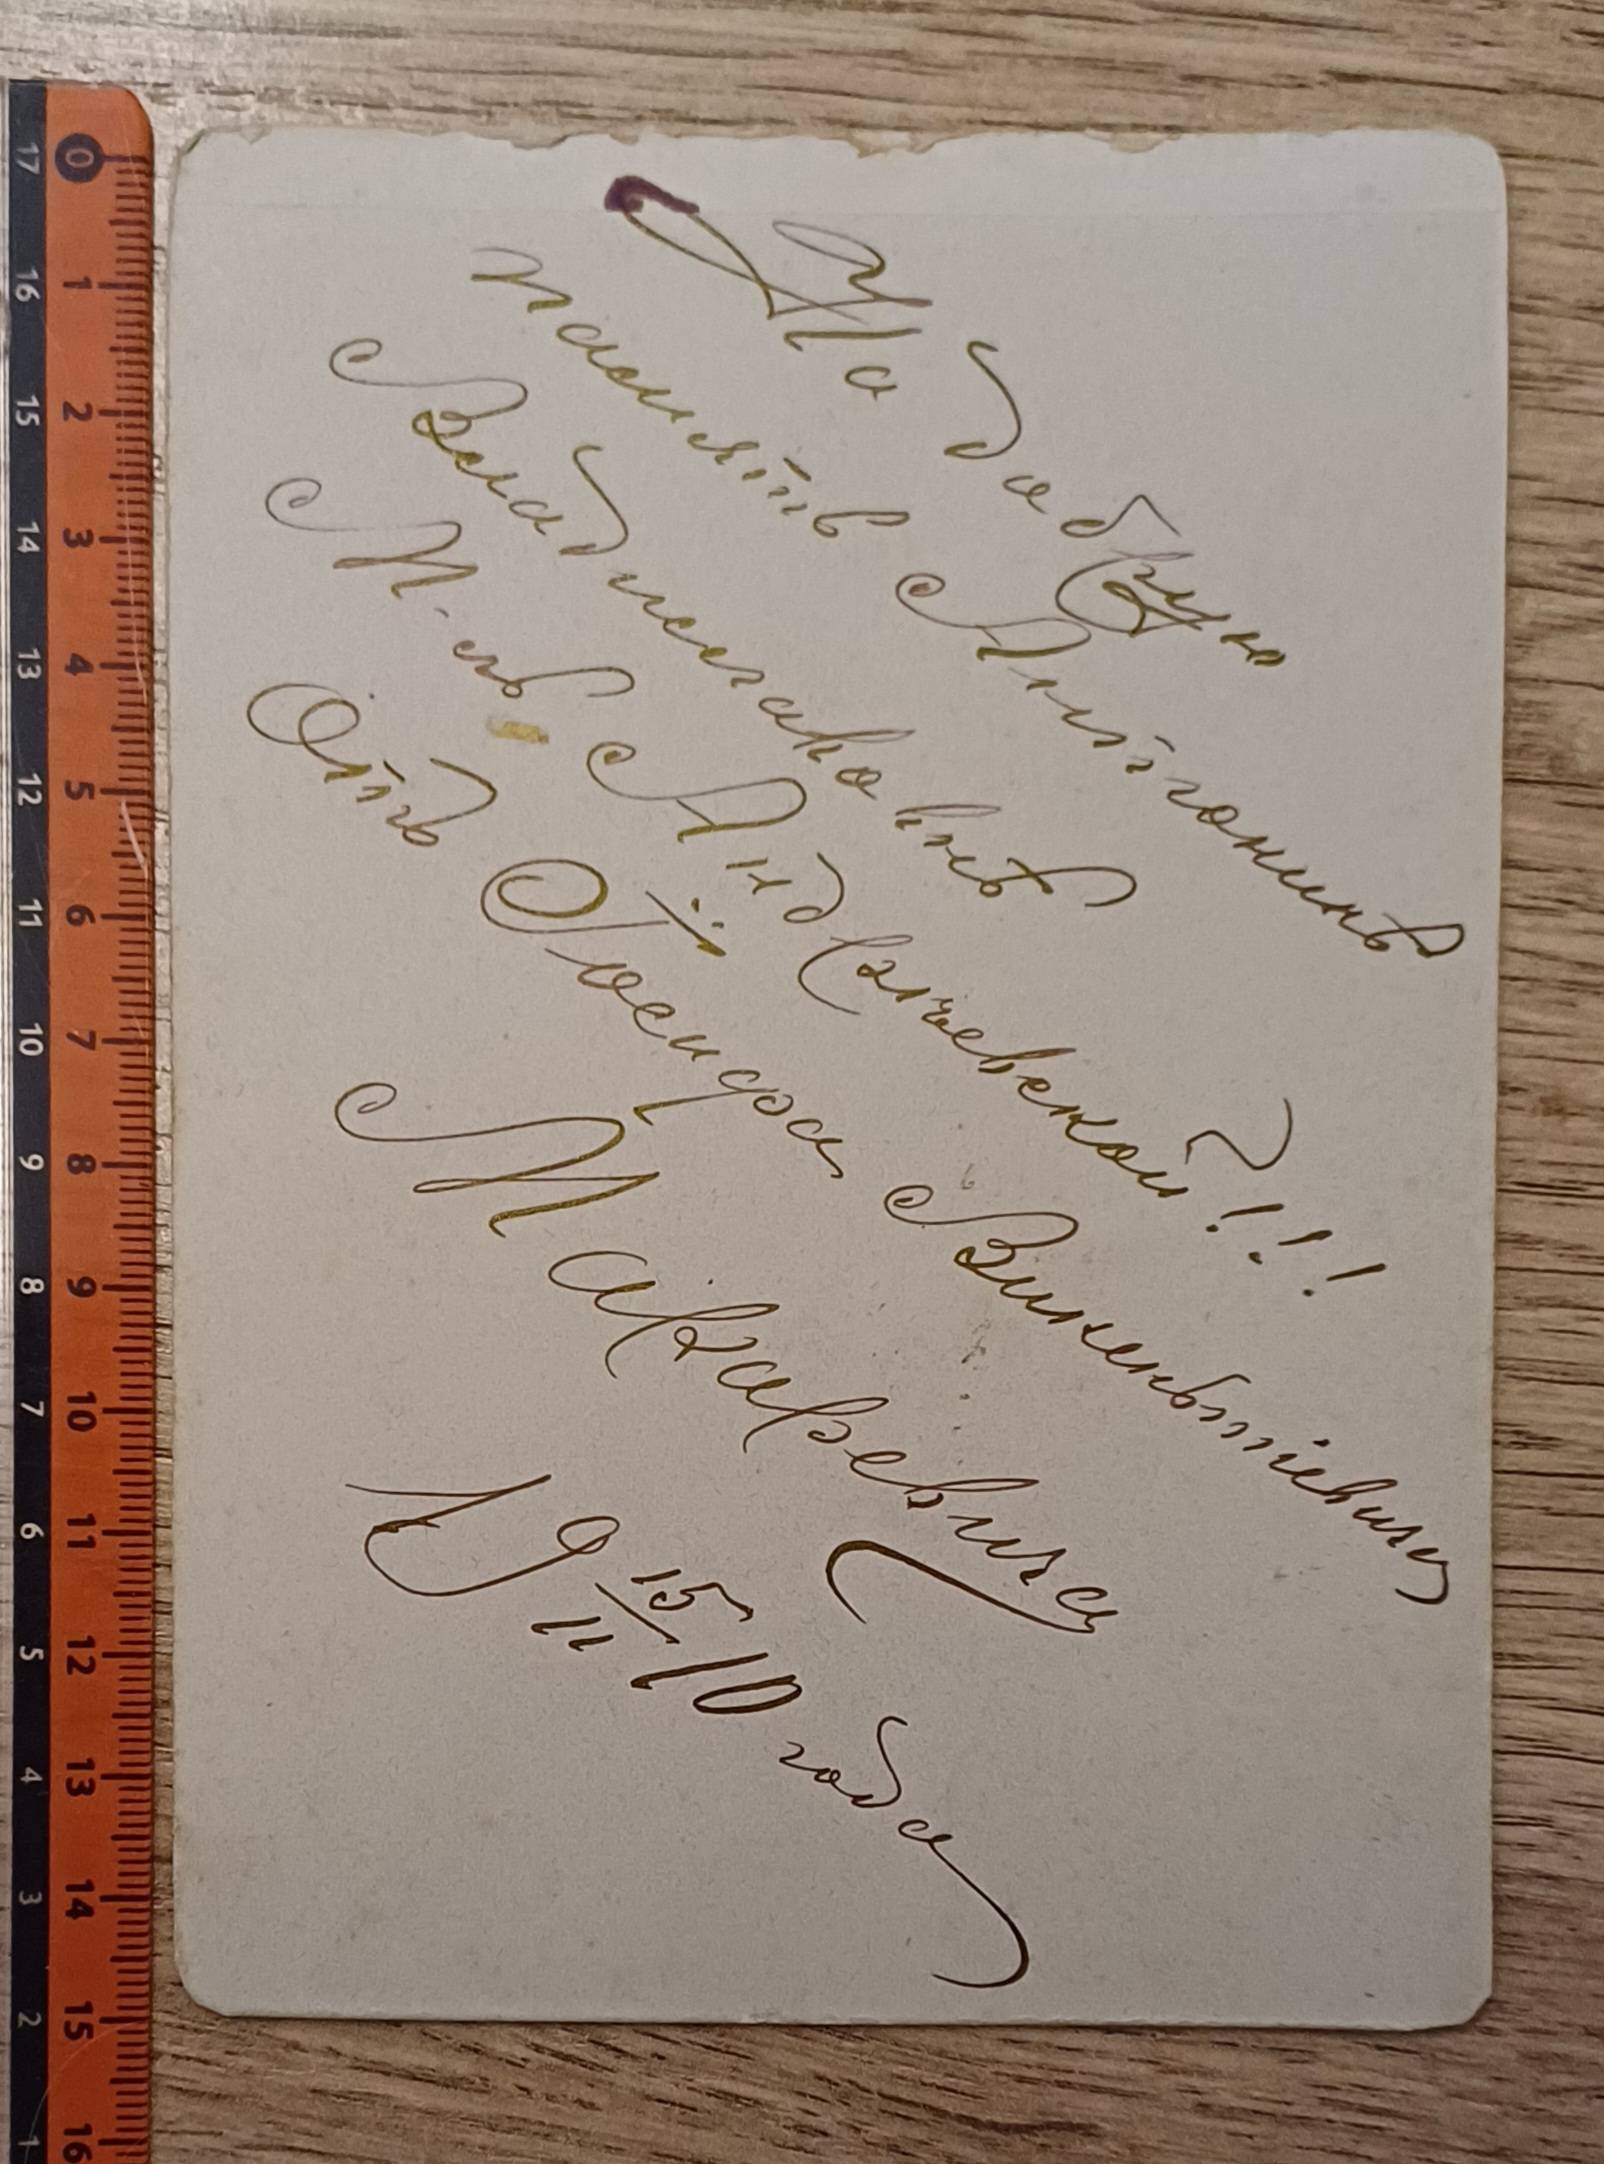 На добрую
память Антонинѣ
Владиславовнѣ
М-лѣ !!!
Отъ Іосифа Викеньтіевича
Макаревича
19 15/11 10 года
0 1 2 3 4 5 6 7 8 9 10 11 12 13 14 15 16
17 16 15 14 13 12 11 10 9 8 7 6 5 4 3 2 1